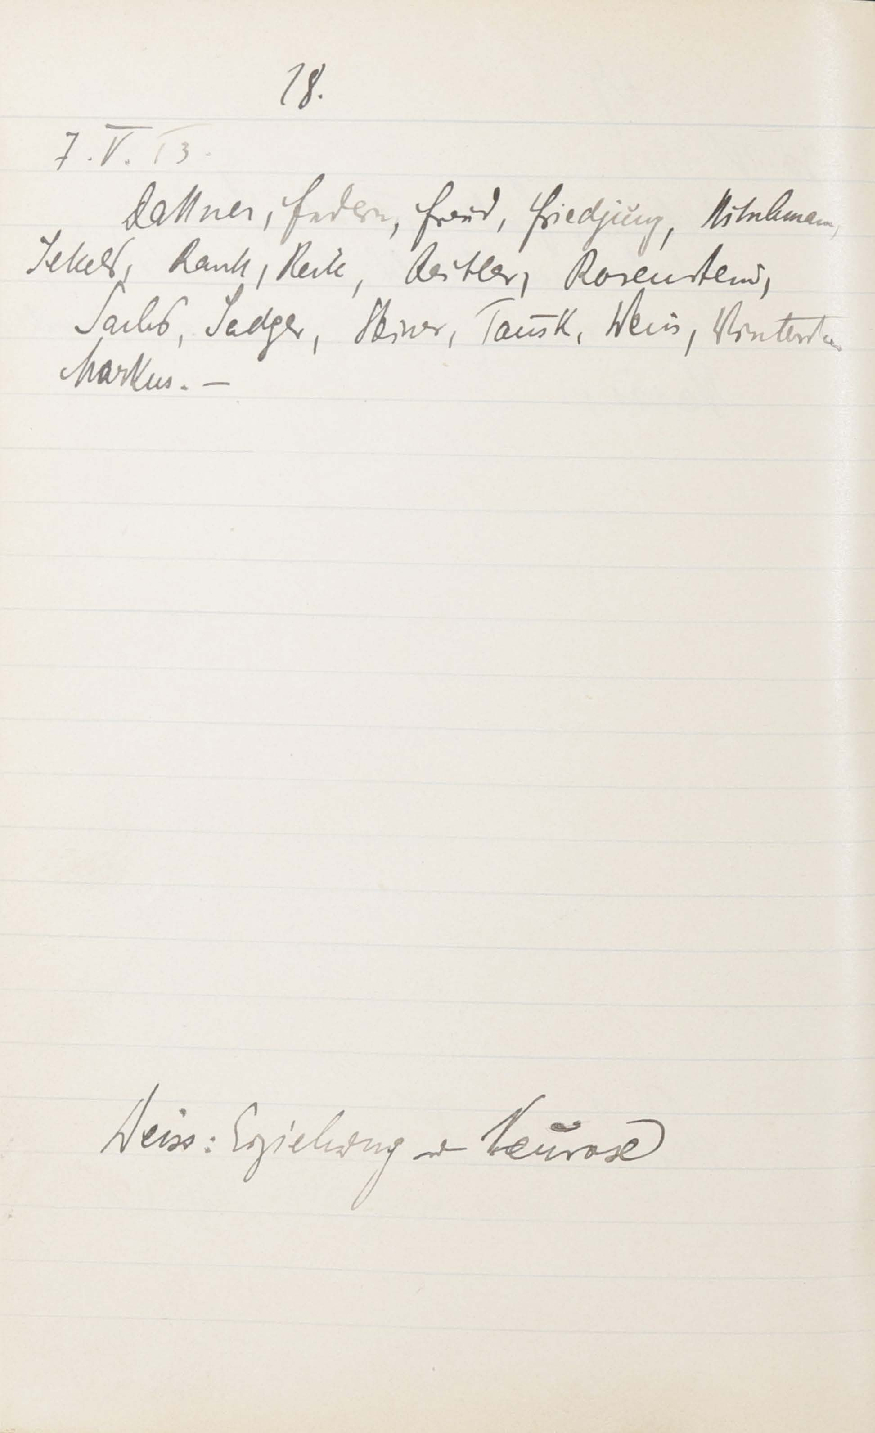 18.
7.V.13.
Dattner, Federn, Freud, Friedjung, Hitschmann,
Jekels, Rank, Reik, Reitler, Rosenstein,
Sachs, Sadger, Steiner, Tausk, Weiss, Winterstein
Markus. —
Weiss: Erziehung u Neurose